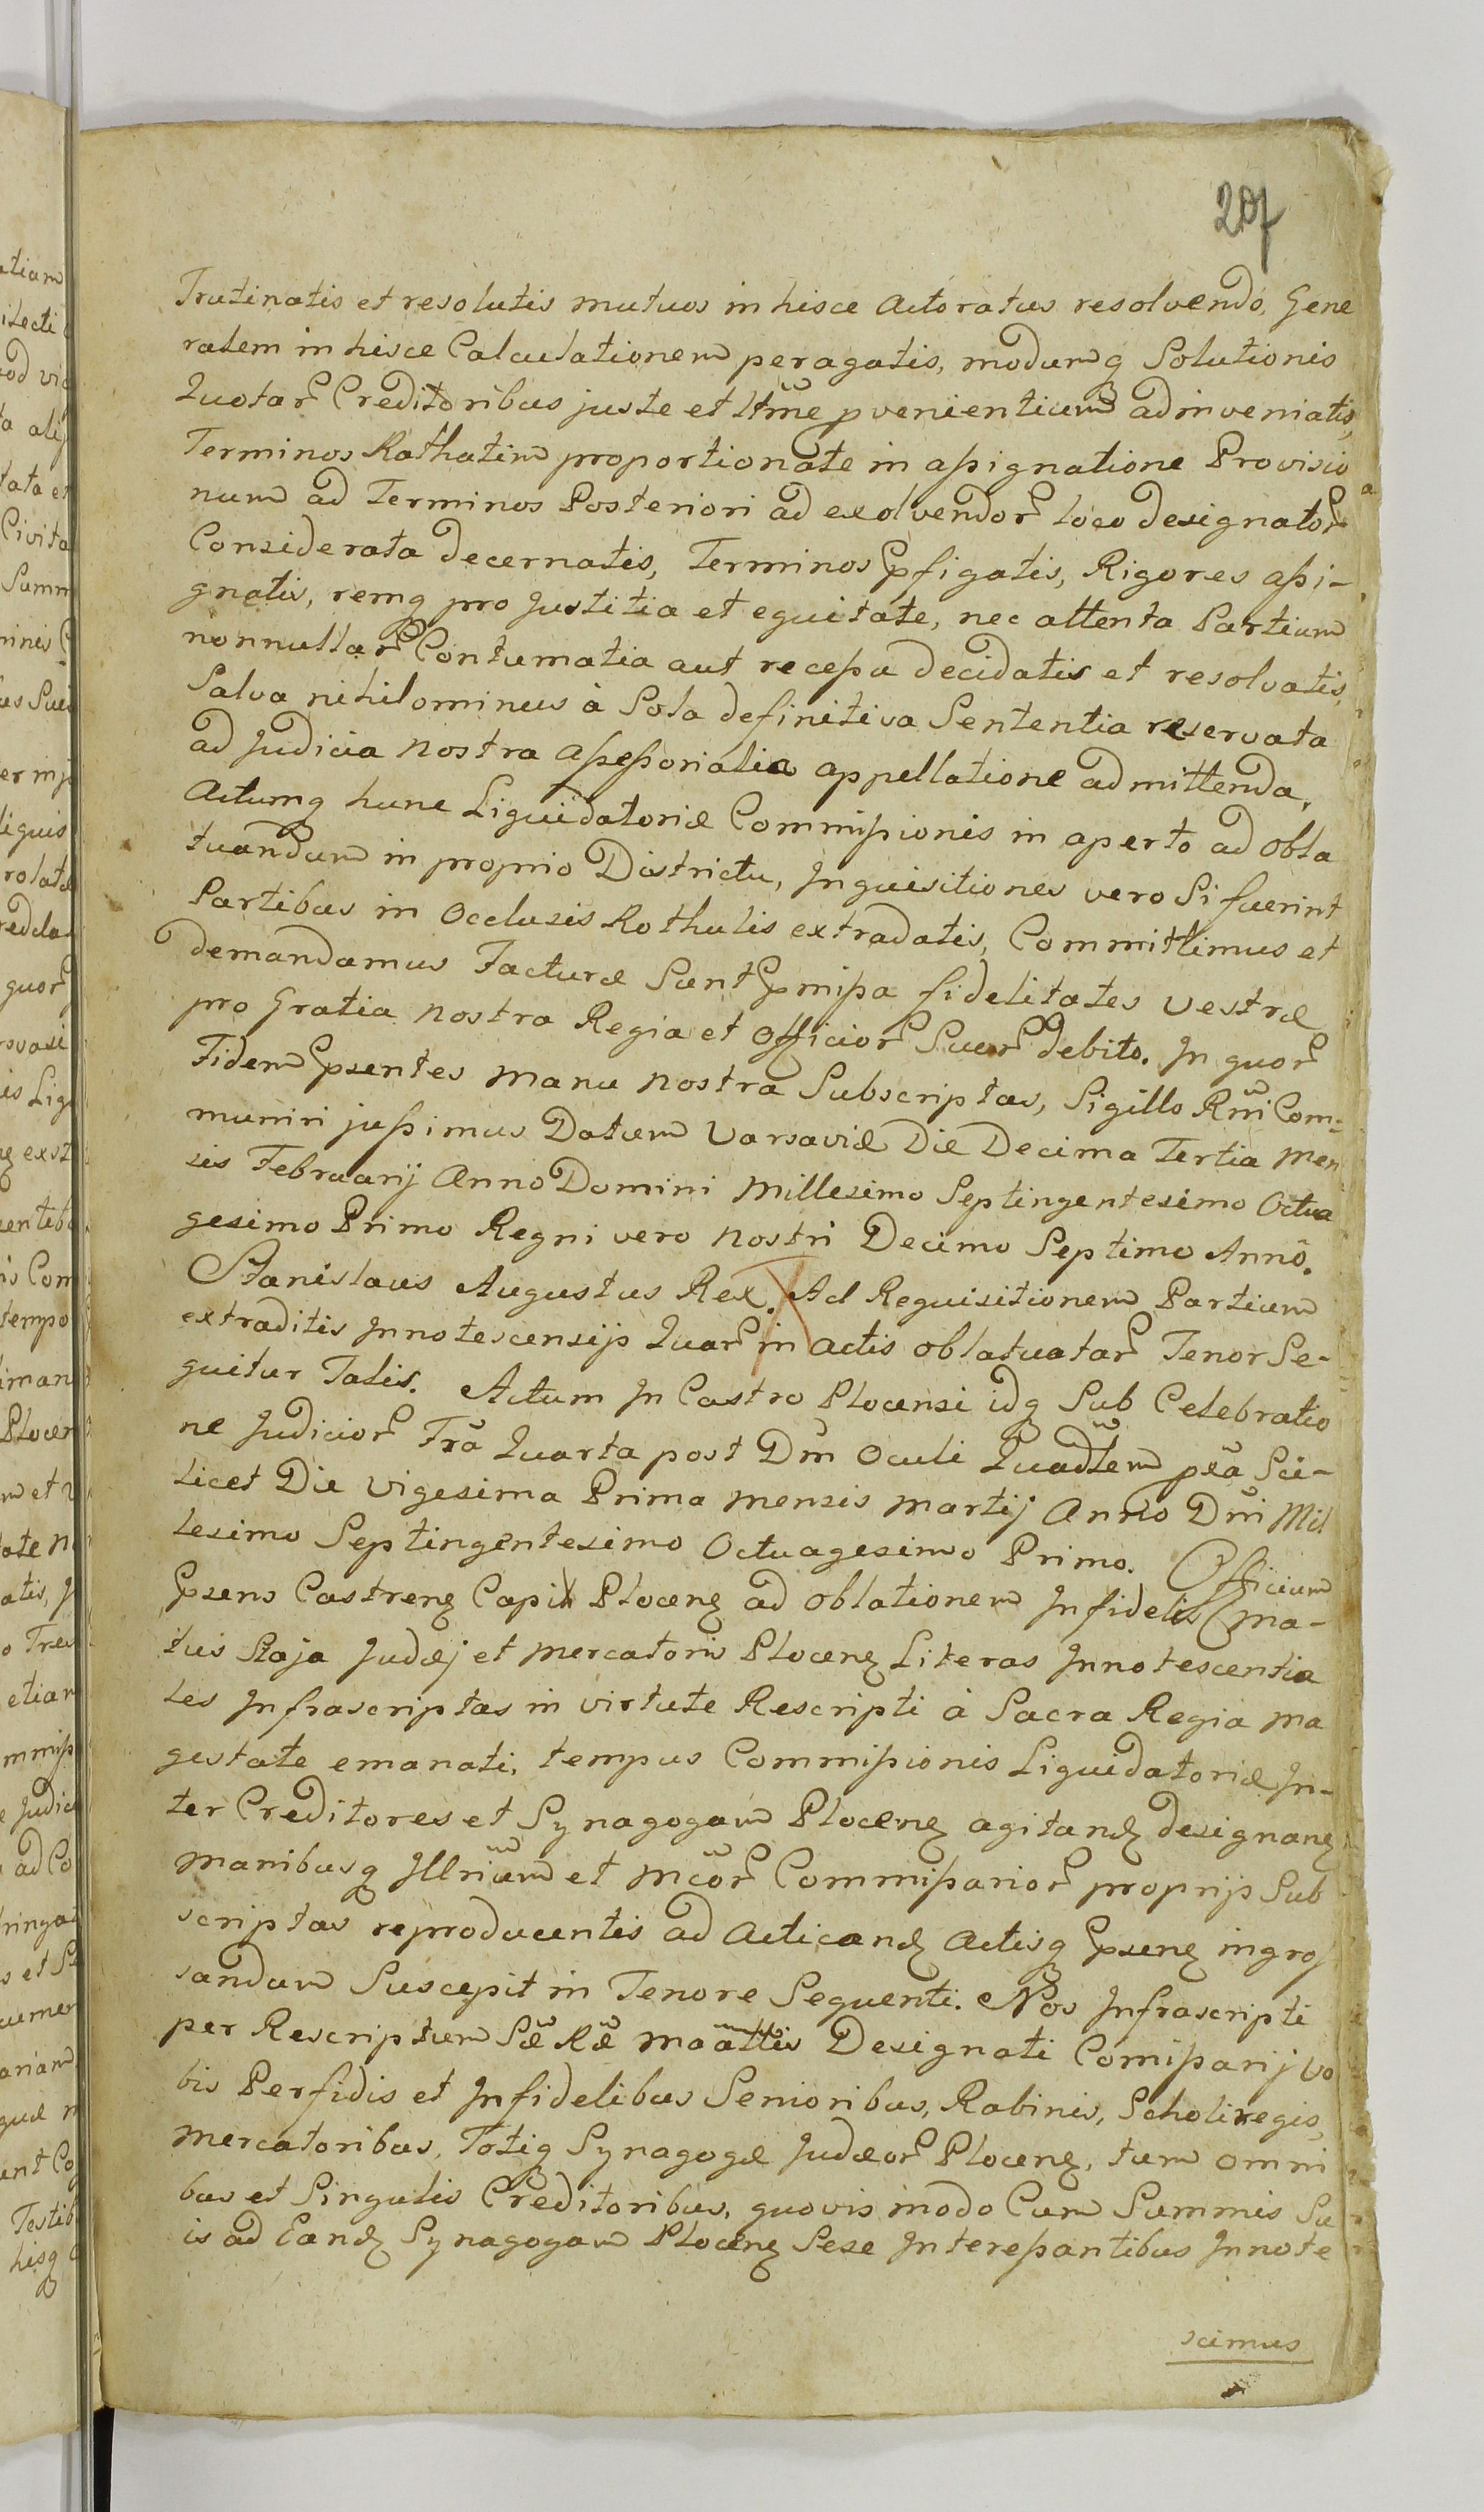 207
Trutinatis et resolutis mutuos in hisce Actoratus resolvendo, Gene
ralem in hisce Calculationem peragatis, modumq Solutionis
Quotar Creditoribus juste et ltme pvenientium adinveniatis,
Terminos Rathatim proportionate in assignatione Provisio
num ad Terminos Posteriori ad exolvendor loco designator
Considerata decernatis, Terminos pfigatis, Rigores assi-
gnatis, remq pro Justitia et equitate, nec attenta Partium
nonnullar Contumatia aut recessu decidatis et resolvatis,
Salva nihilominus à Sola definitiva Sententia reservata
ad Judicia nostra assessorialia appellatione admittenda,
Actumq hunc Liquidatoriæ Commissionis in aperto ad obla
tuandum in proprio Districtu, Inquisitiones vero Si fuerint
Partibus in Occlusis Rothulis extradatis, Committimus et
demandamus Facturæ Sunt pmissa fidelitates vestræ
pro Gratia nostra Regia et Officior Suor debito. In quor
Fidem psentes manu nostra Subscriptas, Sigillo Rni Com=
muniri jussimus Datum Varsaviæ Die Decima Tertia Men
sis Februarij Anno Domini Millesimo Septingentesimo Octua
gesimo Primo Regni vero nostri Decimo Septimo Anno.
Stanislaus Augustus Rex. Ad Requisitionem Partium
extraditis Innotescensijs Quar in Actis oblatuatar Tenor Se-
quitur Talis. Actum In Castro Plocensi idq Sub Celebratio
ne Judicior Fra Quarta post Dm Oculi Quadtem pxa Sci-
licet Die Vigesima Prima mensis Martij Anno Dni Mil
lesimo Septingentesimo Octuagesimo Primo. Officium
psens Castrenz Capit Plocenz ad oblationem Infidelis Ma-
tuis Raja Judæj et Mercatoris Plocenz Literas Innotescentia
les Infrascriptas in virtute Rescripti à Sacra Regia Ma
gestate emanati, tempus Commissionis Liquidatoriæ In-
ter Creditores et Synagogam Plocenz agitandz designanz
Manibusq Illrium et Mcor Commissarior proprijs Sub
scriptas reproducentis ad Acticandz Actisq psenz ingros
sandum Suscepit in Tenore Sequenti. Nos Infrascripti
per Rescriptum Sæ Ræ Maattis Designati Comissarij vo
bis Perfidis et Infidelibus Senioribus, Rabinis, Scholiregis,
Mercatoribus, Totiq Synagogæ Judæor Plocenz, tum omni
bus et Singulis Creditoribus, quovis modo Cum Summis Su
is ad Eandz Synagogam Plocenz Sese Interessantibus Innote
scimus